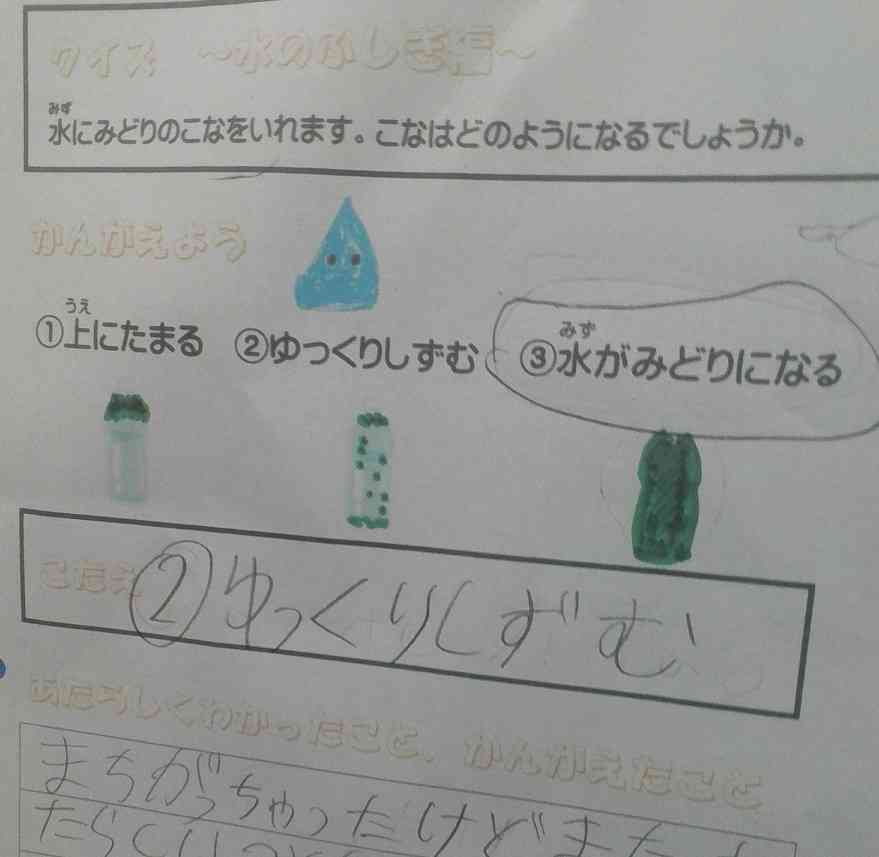 クイズ ～水のふしぎ編～
みず
水にみどりのこなをいれます。こなはどのようになるでしょうか。
かんがえよう
うえ
①上にたまる
②ゆっくりしずむ
みず
③水がみどりになる
こたえ ②ゆっくりしずむ
あたらしくわかったこと、かんがえたこと
まちがっちゃったけどまた